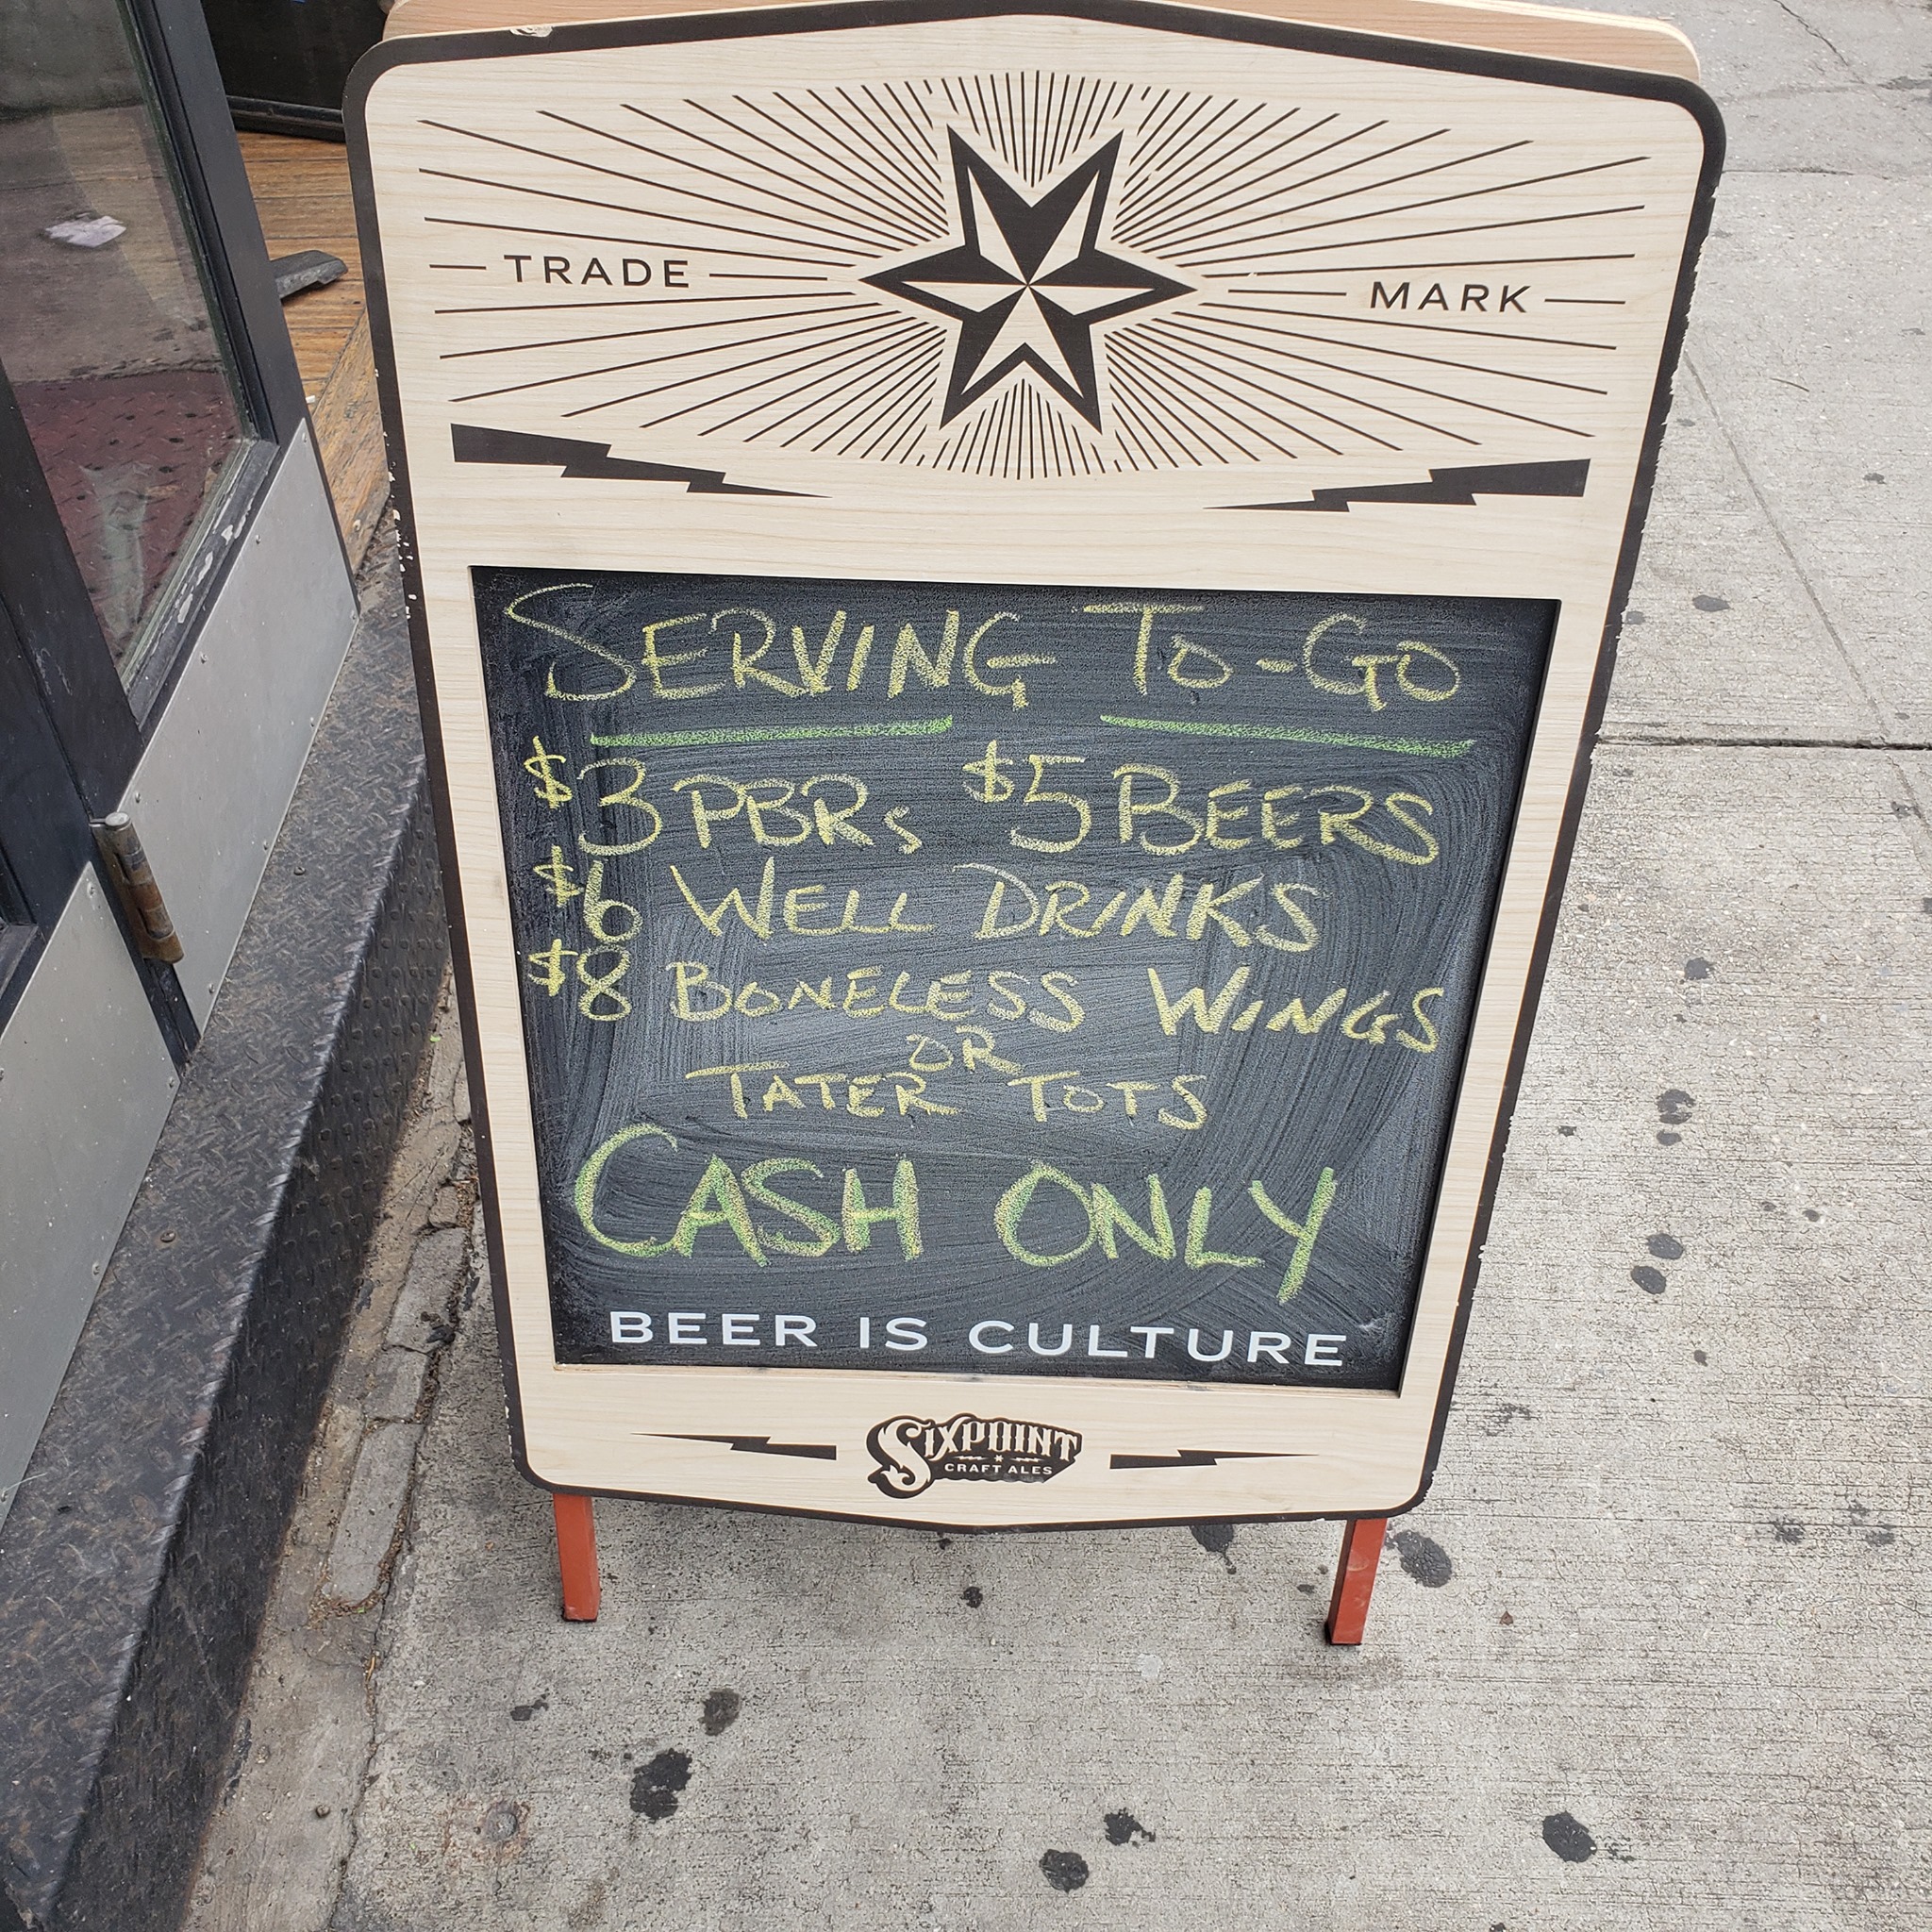 TRADE MARK
SERVING TO-GO
$3 PBRs $5 BEERS
$6 WELL DRINKS
$8 BONELESS WINGS
OR
TATER TOTS
CASH ONLY
BEER IS CULTURE
SIXPOINT
CRAFT ALES